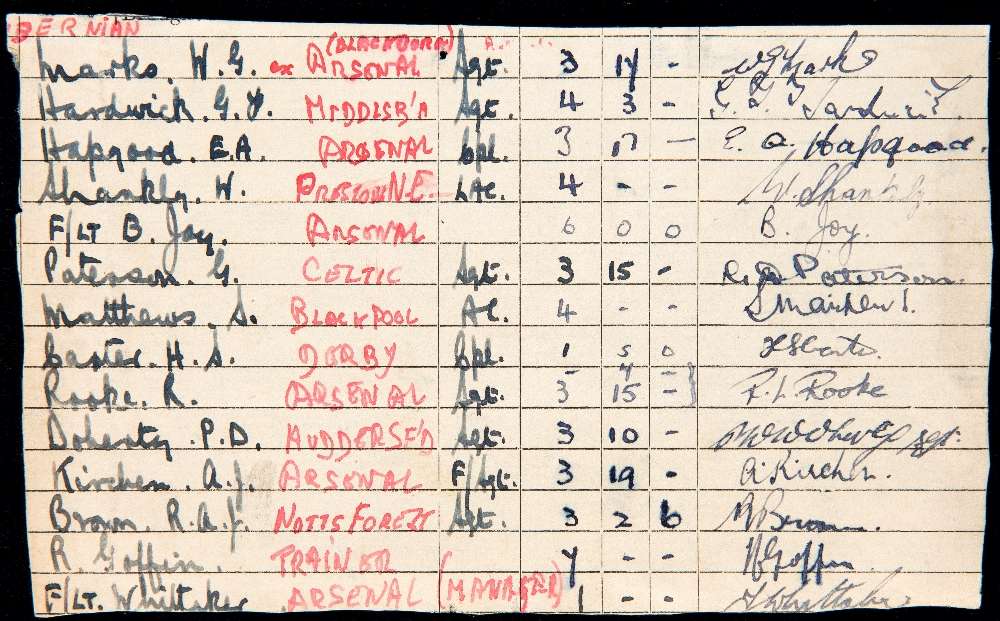 BERNIAN
(BLACKBURN)
Marks. W.G. ex ARSENAL Sgt. 3 14 - W G Marks
Hardwick. G.F. MIDDLSB'R Sgt. 4 3 - G. F. Hardwick
Hapgood. E.A. ARSENAL Cpl. 3 17 - E. A. Hapgood.
Shankly. W. PRESTON N.E. LAC. 4 - - W. Shankly.
F/LT B. Joy. ARSENAL 6 0 0 B. Joy.
Paterson. G. CELTIC Sgt. 3 15 - Paterson.
Matthews. S. BLACKPOOL AC. 4 - - S Matthews.
Carter. H.S. DERBY Cpl. 1 5 0 H S Carter.
4 -
Rooke. R. ARSENAL Sgt. 3 15 - } R. L. Rooke
Doherty. P.D. HUDDERSF'D Sgt. 3 10 - Sgt.
Kirchen. A.J. ARSENAL F/Sgt. 3 19 - A. Kirchen.
Brown. R.A.J. NOTTS FOREST Sgt. 3 2 6 R Brown.
R. Goffin. TRAINER 7 - - R Goffin
F/LT. Whittaker ARSENAL (MANAGER) 1 - - Whittaker